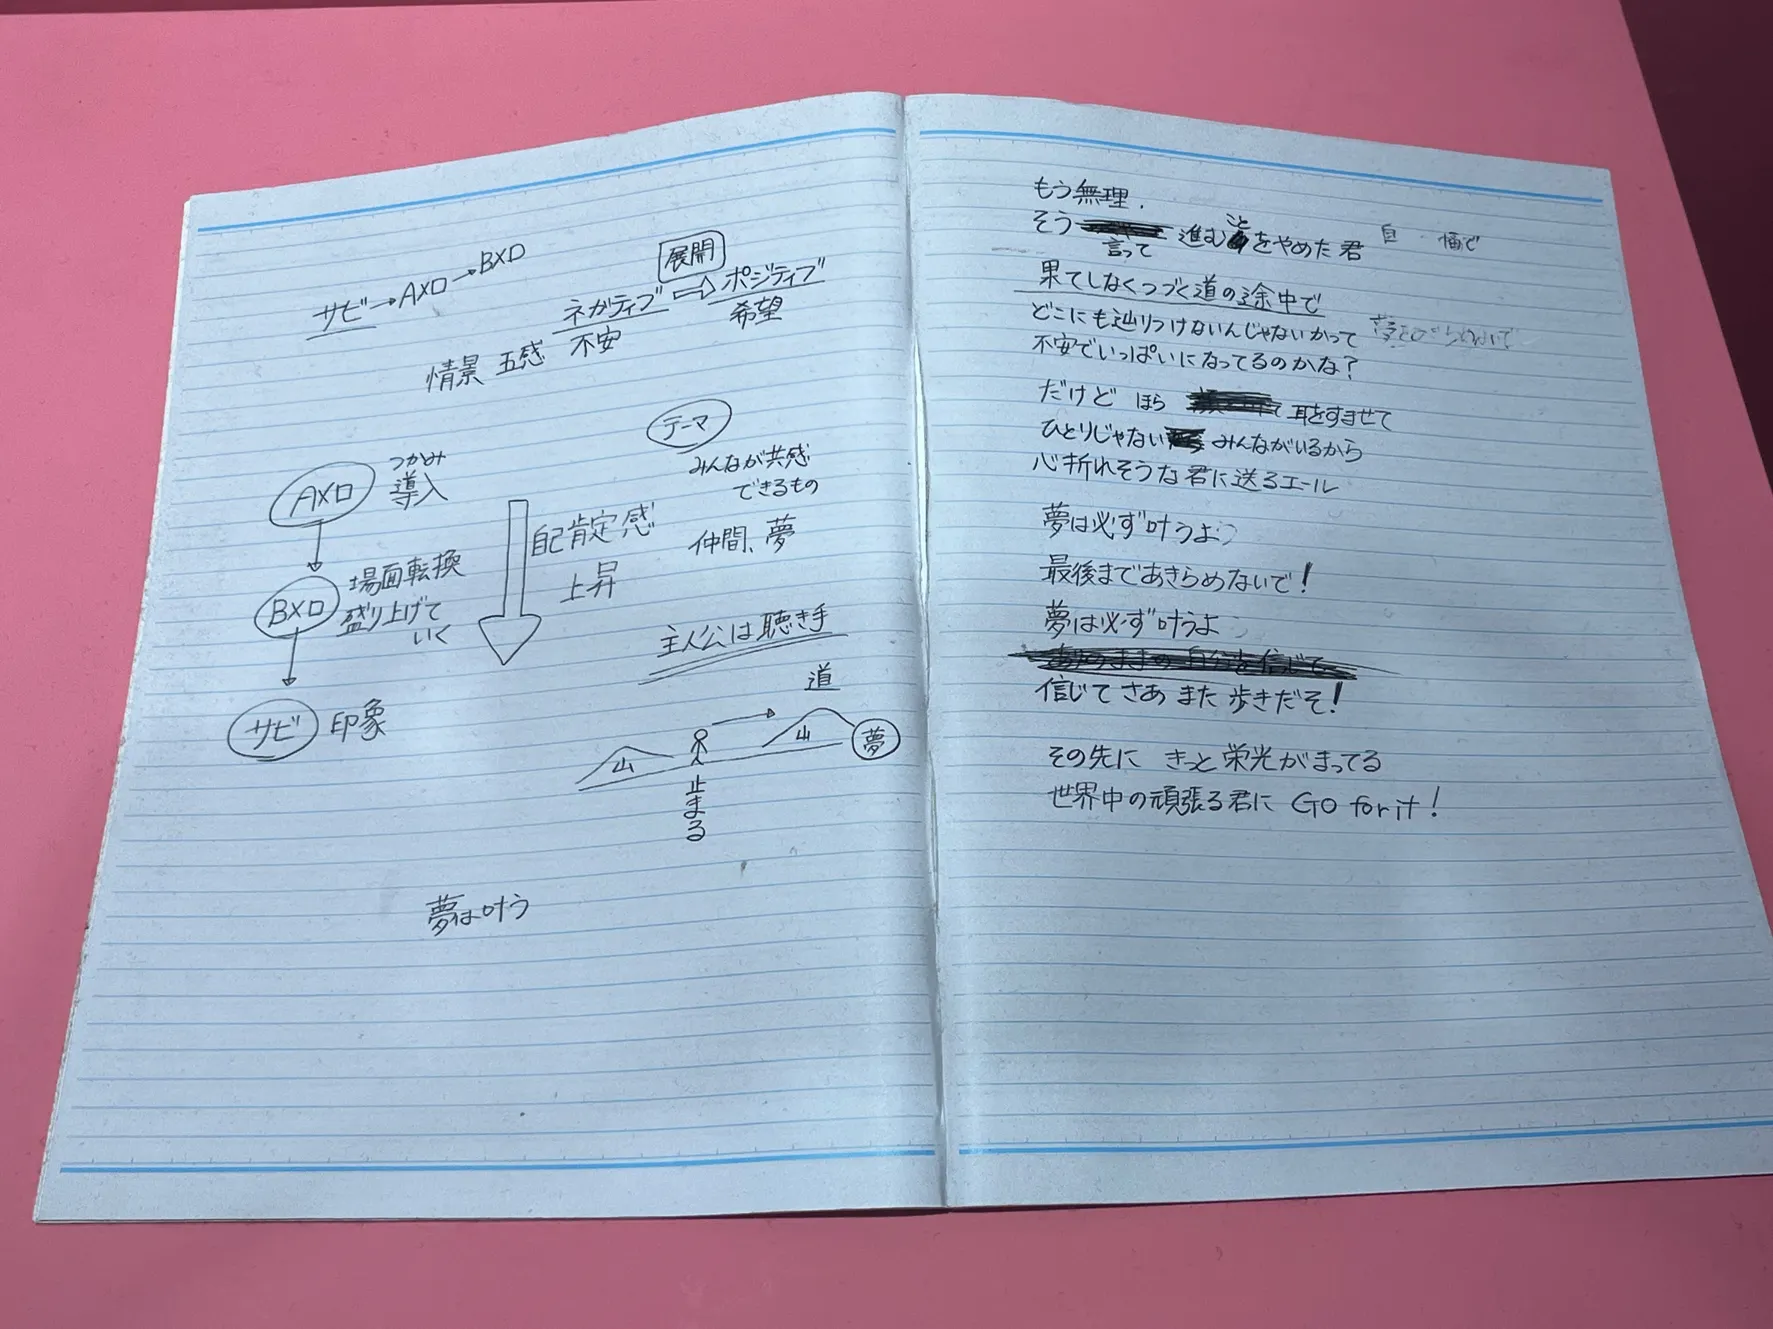 サビ→Aメロ→Bメロ
展開
ネガティブ⇨ポジティブ
情景 五感 不安 希望
テーマ
みんなが共感
できるもの
仲間、夢
Aメロ
つかみ
導入
自己肯定感
上昇
Bメロ
場面転換
盛り上げて
いく
サビ 印象
主人公は聴き手
道
山 山 夢
止まる
夢は叶う
もう無理.
そう言って 進むことをやめた君
果てしなくつづく道の途中で
どこにも辿りつけないんじゃないかって
不安でいっぱいになってるのかな?
だけど ほら 耳をすませて
ひとりじゃない みんながいるから
心折れそうな君に送るエール
夢は必ず叶うよ
最後まであきらめないで!
夢は必ず叶うよ
信じて さあ また 歩きだそ!
その先に きっと栄光がまってる
世界中の頑張る君に GO for it!